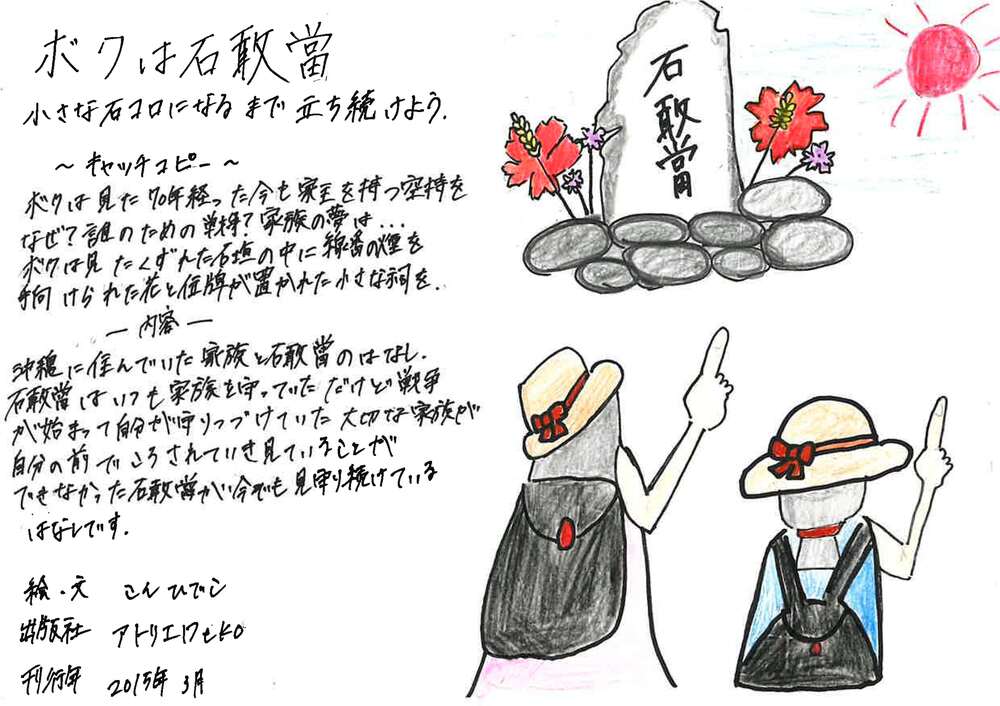 ボクは石敢當
小さな石コロになるまで立ち続けよう.
～キャッチコピー～
ボクは見た70年経った今も家主を持つ空持を
なぜ?誰のための戦?家族の夢は...
ボクは見たくずれた石垣の中に線香の煙を
手向けられた花と位牌が置かれた小さな祠を.
ー内容ー
沖縄に住んでいた家族と石敢當のはなし.
石敢當はいつも家族を守っていただけど戦争
が始まって自分が守りつづけていた大切な家族が
自分の前でころされていき見ていることが
できなかった石敢當が今でも見守り続けている
はなしです.
絵・文 こんひでこ
出版社 アトリエ
刊行年 2015年3月
石敢當